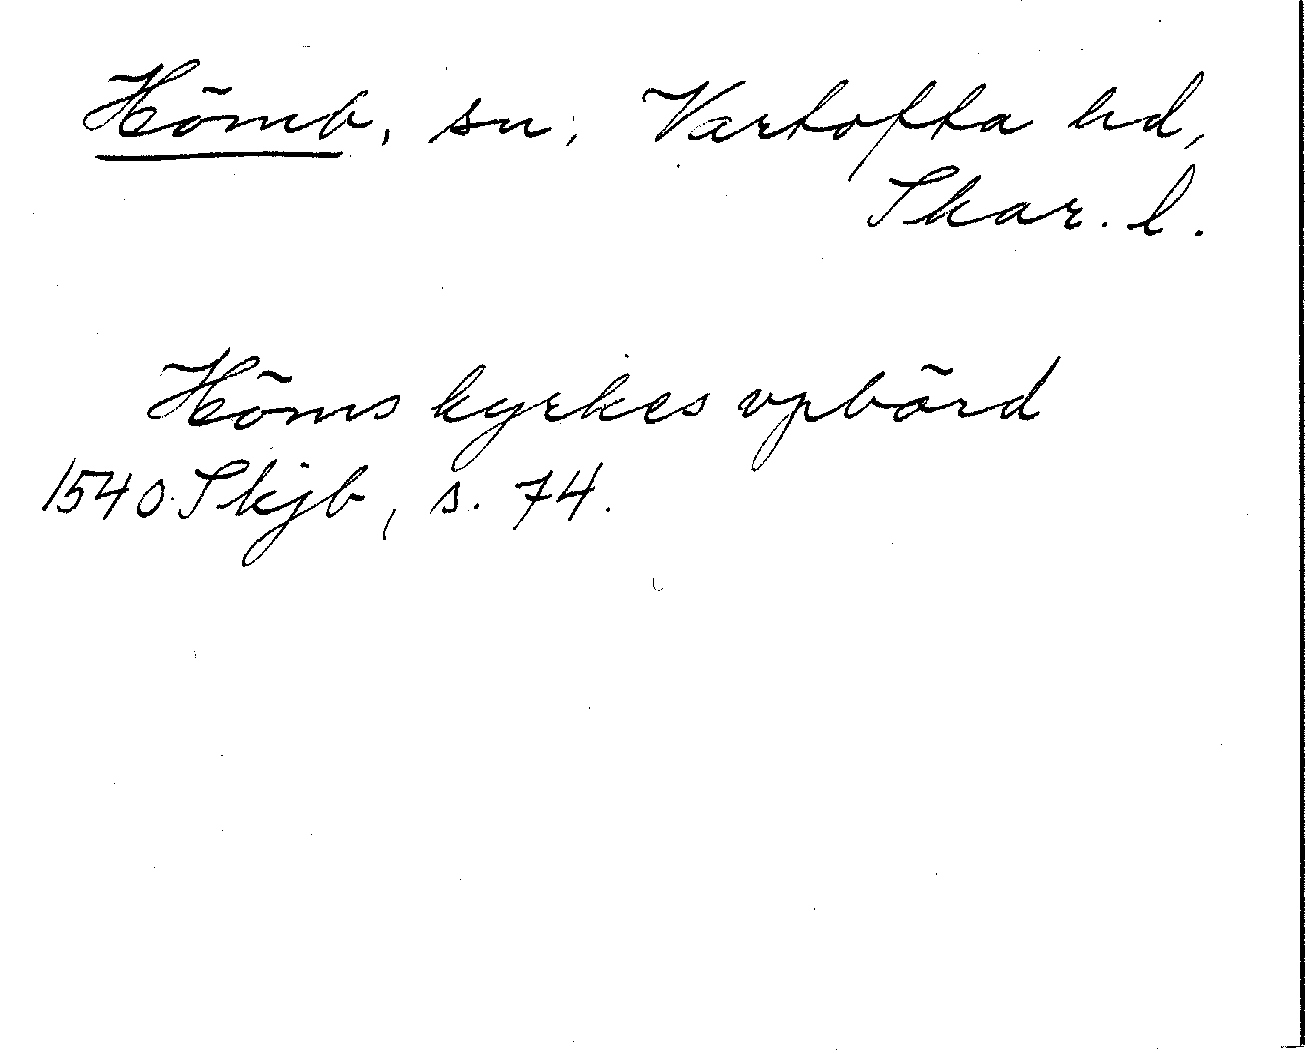 Hömb, sn, Vartofta hd,
Skar. l.
Höms kyrkes vpbörd
1540 Skjb, s. 74.